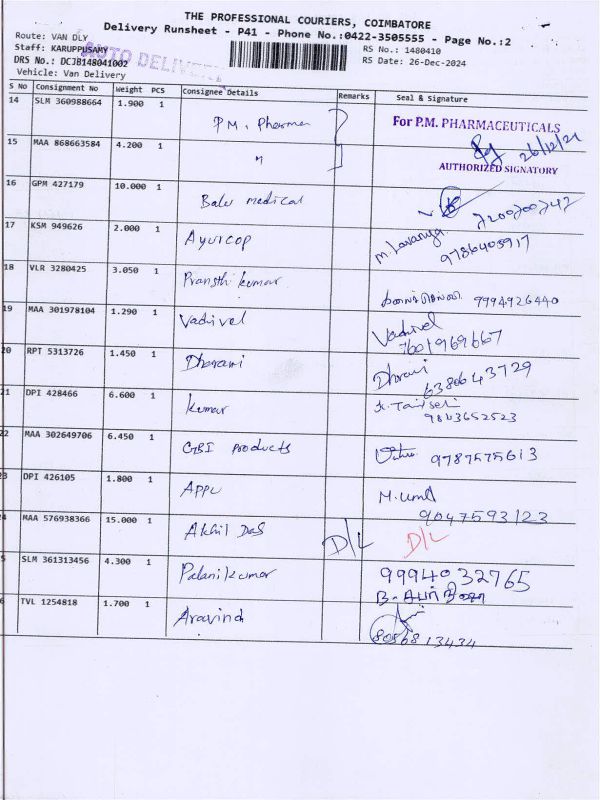 THE PROFESSIONAL COURIERS, COIMBATORE
Delivery Runsheet - P41 - Phone No.:0422-3505555 - Page No.:2
Route: VAN DLY
Staff: KARUPPUSAMY
AUTO DELIVERY
RS No.: 1480410
DRS No.: DCJB148041002
RS Date: 26-Dec-2024
Vehicle: Van Delivery
S No Consignment No Weight PCS Consignee Details Remarks Seal & Signature
14 SLM 360988664 1.900 1 P.M. Pharma For P.M. PHARMACEUTICALS
26/12/24
15 MAA 868663584 4.200 1 " AUTHORIZED SIGNATORY
16 GPM 427179 10.000 1 Balu medical
17 KSM 949626 2.000 1 Ayurcop M. Lavanya
9786405917
18 VLR 3280425 3.050 1 kumar 9994926440
19 MAA 301978104 1.290 1 Vadivel Vadivel
7601969667
20 RPT 5313726 1.450 1 Dharani Dharani
6380643729
21 DPI 428466 6.600 1 Kumar
9843652523
22 MAA 302649706 6.450 1 GBI products 9787575613
23 DPI 426105 1.800 1 APPU
9047593123
24 MAA 576938366 15.000 1 Akhil Das D/L D/L
25 SLM 361313456 4.300 1 Palanikumar 99940 32765
26 TVL 1254818 1.700 1 Aravind
8056813434